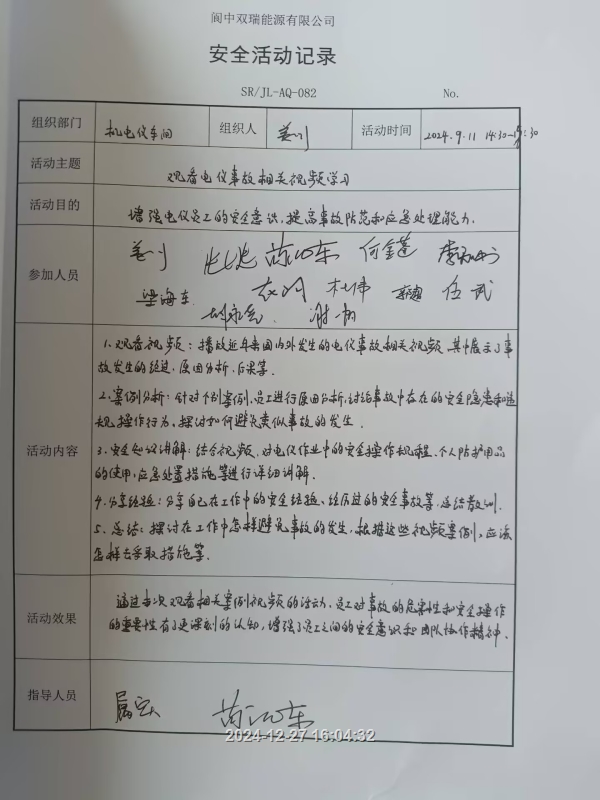 阆中双瑞能源有限公司
安全活动记录
SR/JL-AQ-082 No.
组织部门 机电仪车间 组织人 姜川 活动时间 2024.9.11 14:30-15:30
活动主题 观看电仪事故相关视频学习
活动目的 增强电仪员工的安全意识,提高事故防范和应急处理能力.
参加人员
姜川 何金蓬
梁海东 杜伟 任武
活动内容
1.观看视频:播放近年来国内外发生的电仪事故相关视频,其中展示了事
故发生的经过、原因分析、后果等.
2.案例分析:针对个别案例,员工进行原因分析,讨论事故中存在的安全隐患和违
规操作行为,探讨如何避免类似事故的发生.
3.安全知识讲解:结合视频,对电仪作业中的安全操作规程、个人防护用品
的使用,应急处置措施等进行详细讲解.
4.分享经验:分享自己在工作中的安全经验、经历过的安全事故等,总结教训.
5.总结:探讨在工作中怎样避免事故的发生,根据这些视频案例,应该
怎样去采取措施等.
活动效果
通过本次观看相关案例视频的活动,员工对事故的危害性和安全操作
的重要性有了更深刻的认知,增强了员工之间的安全意识和团队协作精神.
指导人员
2024-12-27 16:04:32